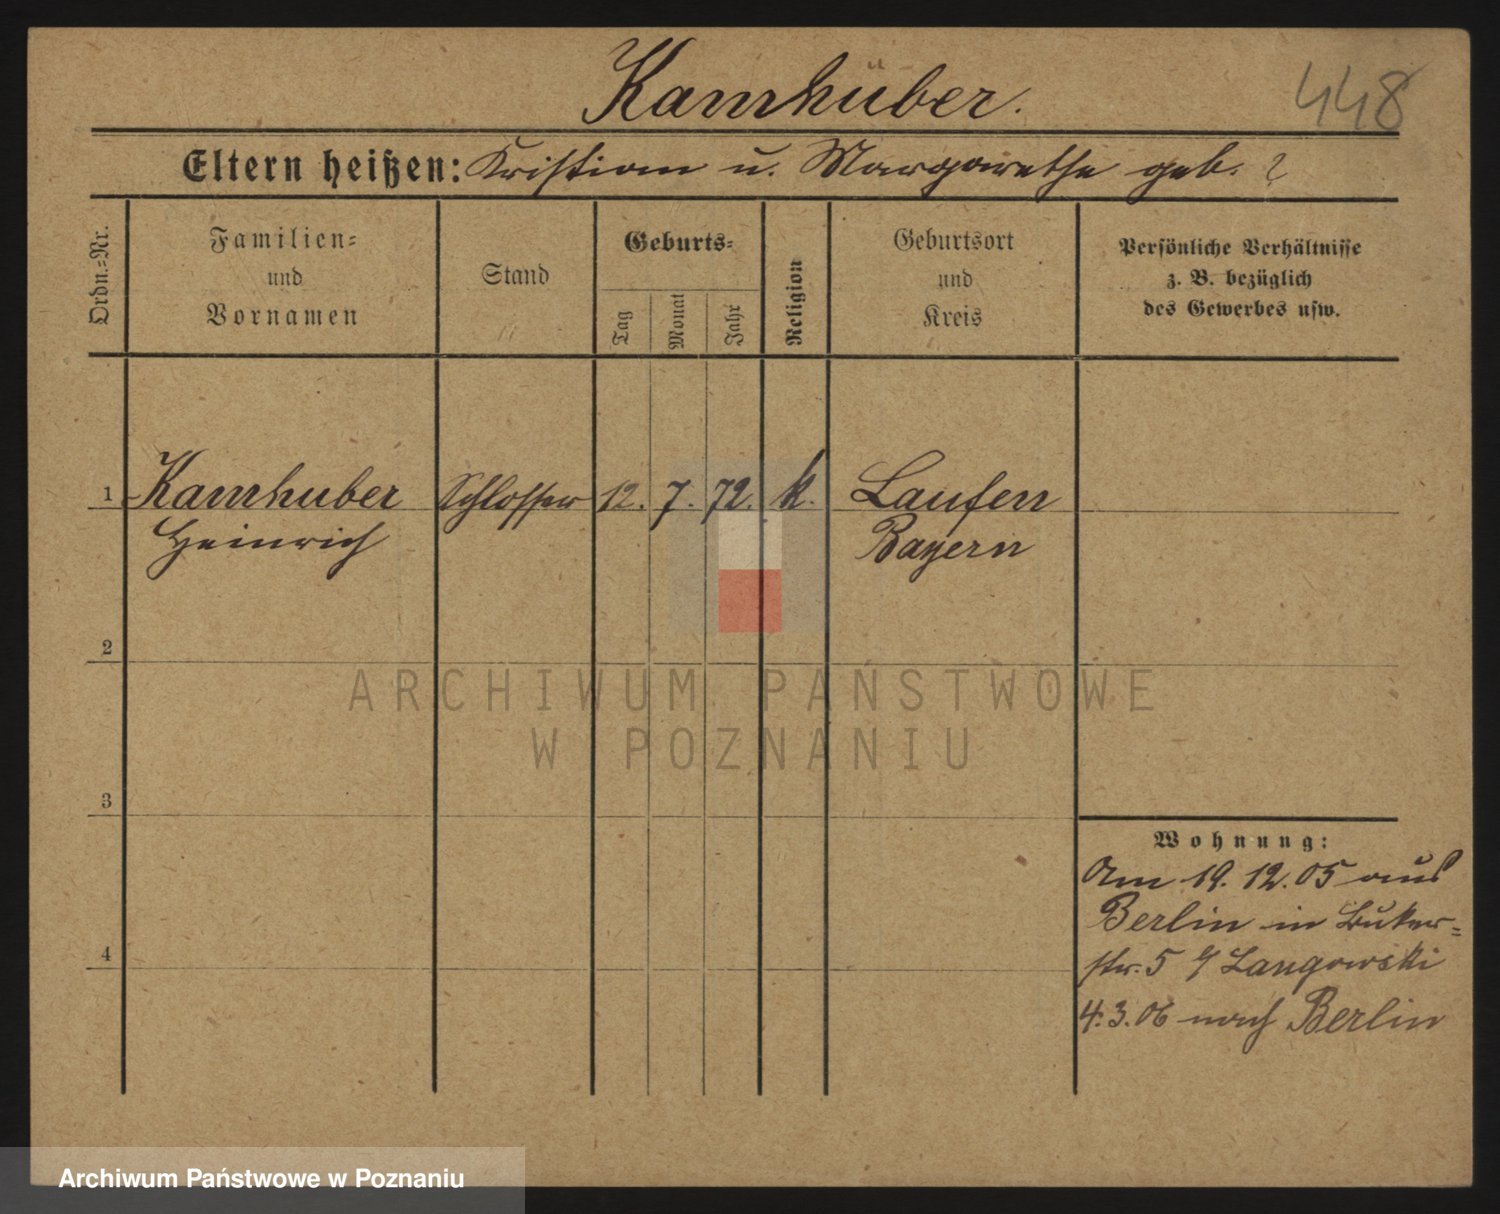 Kamhüber.
448
Eltern heißen: Kristian u. Margarethe geb. ?
Ordn.-Nr.
Familien-
und
Vornamen
Stand
Geburts-
Tag
Monat
Jahr
Religion
Geburtsort
und
Kreis
Persönliche Verhältnisse
z. B. bezüglich
des Gewerbes usw.
1 Kamhuber Schlosser 12. 7. 72. k. Laufen
Heinrich Bayern
2
3
4
Wohnung:
Am 19.12.05 aus
Berlin in Buker-
str. 5 Langowski
4.3.06 nach Berlin
ARCHIWUM PAŃSTWOWE
W POZNANIU
Archiwum Państwowe w Poznaniu